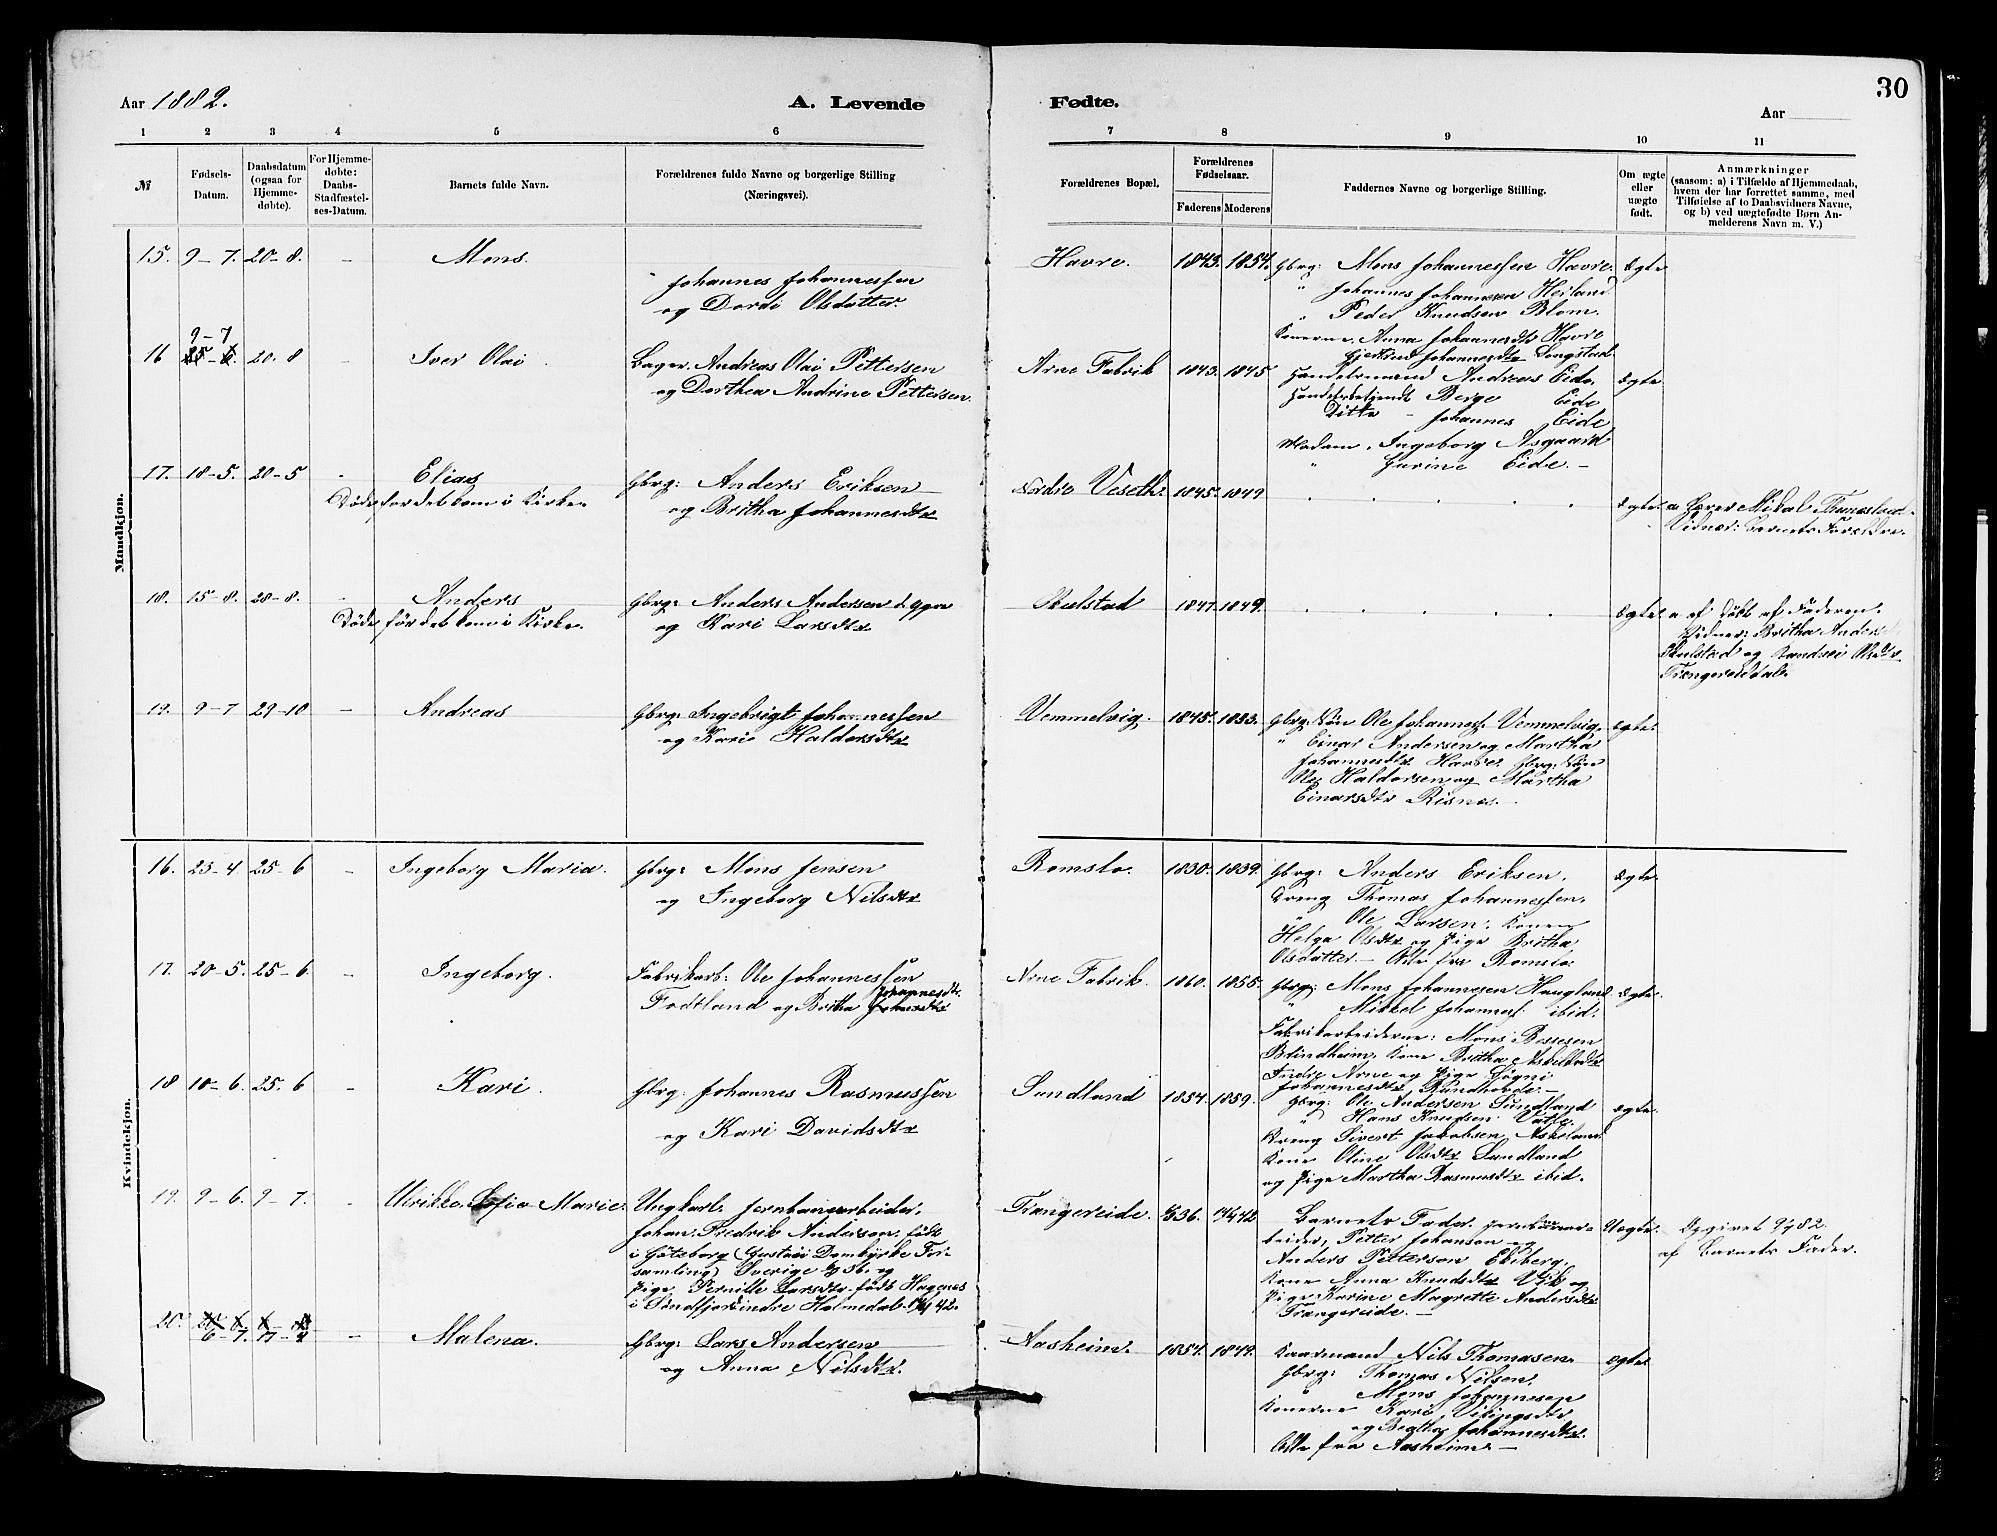 30
Aar 1882.
A. Levende
Fødte.
Aar
1 2 3 4 5 6 7 8 9 10 11
№
Fødsels-
Datum.
Daabsdatum
(ogsaa for
Hjemme-
døbte).
For Hjemme-
døbte:
Daabs-
Stadfæstel-
ses-Datum.
Barnets fulde Navn.
Forældrenes fulde Navne og borgerlige Stilling
(Næringsvei).
Forældrenes Bopæl.
Forældrenes
Fødselsaar.
Faderens Moderens
Faddernes Navne og borgerlige Stilling.
Om ægte
eller
uægte
født.
Anmærkninger
(saasom: a) i Tilfælde af Hjemmedaab,
hvem der har forrettet samme, med
Tilføielse af to Daabsvidners Navne,
og b) ved uægtefødte Børn An-
melderens Navn m. V.)
Mandkjøn.
15. 9-7. 20-8. - Mons.
Johannes Johannessen
og Dordi Olsdatter.
Havre. 1843. 1854.
Gbrg: Mons Johannessen Havre.
" Johannes Johannesen Heiland
" Peder Knudsen Blom.
Konerne, Anna Johannesdtr Havre
Gjertrud Johannesdtr Songstad.
Ægte
16 9-7 20-8 - Iver Olai.
Bager. Andreas Olai Pettersen
og Dorthea Andrine Pettersen.
Arne Fabrik 1843. 1845.
Handelsmand Andreas Eide,
Handelsbetjendt Berge Eide
Ditto - Johannes Eide
Madam. Ingeborg Asgaard
" Jurine Eide. -
Ægte
17. 18-5. 20-5 - Elias
Døde før det kom i Kirke.
Gbrg: Anders Eriksen
og Britha Johannesdtr
Nordre Veseth. 1845. 1849
Ægte. a. Lærer Mikal
Vidner: Barnets Forældre.
18. 15-8. 28-8. - Anders
Døde før det kom i Kirke.
Gbrg: Anders Andersen d. yngre
og Kari Larsdtr
Rulstad 1847. 1849.
Ægte. a af Døbt af Faderen.
Vidner: Britha Anders
Rulstad og Olsdtr
Trangereiddal.
19. 9-7 29-10 - Andreas
Gbrg: Ingebrigt Johannessen
og Kari Haldorsdtr
Vemmelvig. 1845. 1853.
Gbrg. Søn Ole Johanness. Vemmelvig.
" Einar Andersen og Martha
Johannesdtr Havre. Gbrg. Søn
Ole Haldorsen og Martha
Einarsdtr Risnes. -
Ægte.
Kvindekjøn.
16. 23-4 25-6 - Ingeborg Maria.
Gbrg: Mons Jensen
og Ingeborg Nilsdtr
Romslo. 1830. 1839.
Gbrg: Anders Eriksen.
Dreng Thomas Johannessen,
" Ole Larsen. Konen
Helga Olsdtr og Pige Britha
Olsdatter. - Alle fra Romslo.
Ægte.
17. 20-5. 25-6. - Ingeborg.
Fabrikarb: Ole Johannessen
Fodtland og Britha Johannesdtr.
Arne Fabrik. 1860. 1855.
Gbrg: Mons Johannesen Haugland
" Mikkel Johanness: ibid.
Fabrikarbeiderne: Mons Bessesen
Blindheim, Kone Britha Askilsdtr
Indre Arne og Pige Søgni
Johannesdtr Rundhovde. -
Ægte.
18 10-6. 25-6 - Kari.
Gbrg: Johannes Rasmussen
og Kari Davidsdtr
Sundland 1854. 1859.
Gbrg: Ole Andersen Sundland
" Hans Knudsen Vatle.
Dreng Sivert Jakobsen Askeland
Kone Oline Olsdtr Sundland
og Pige Martha Rasmusdtr ibid.
Ægte.
19. 9-6. 9-7. - Ulrikke Sofie Marie.
Ungkarl. Jernbanearbeider.
Johan Fredrik Anderson, født
i Gøteborg (Gustavi Domkyrke For-
samling) Sverige 36. og
Pige Pernille Larsdtr. født Hagenes
i Søndfjord indre Holmedal 42.
Trangereide. 36. 42
Barnets Fader. Jernbanear-
beider, Petter Johanson og
Anders Petterson Ekiberg.
Kone Anna Knudsdtr Vik og
Pige Karine Magrette Andersdtr
Trangereide. -
Uægte. Opgivet 9/7 82.
af Barnets Fader.
20. 6-7. - Malena.
Gbrg: Lars Andersen
og Anna Nilsdtr.
Aasheim. 1854. 1849.
Kaarmand Nils Thomasen.
Gbrg: Thomas Nilsen.
" Mons Johannesen
Konerne Kari Vikingsdtr
og Johannesdtr.
Alle fra Aasheim. -
Ægte